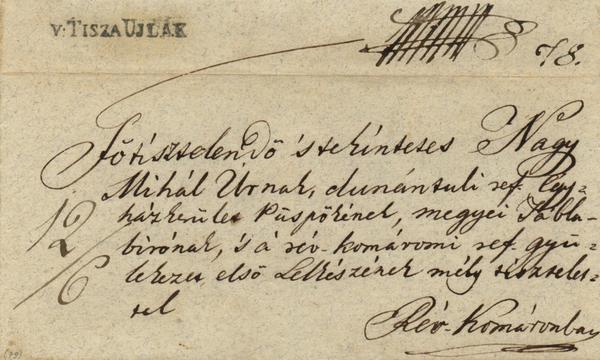 v: TISZA UJLAK
78.
Főtisztelendő 's tekintetes Nagy
Mihál Urnak, dunántuli ref. Egy-
házkerület Püspökének, megyei Tábla-
birónak, 's a rév-komáromi ref. gyü-
lekezet első Lelkészének mély tisztelet-
tel
12/6
Rév-Komáromban
(79)